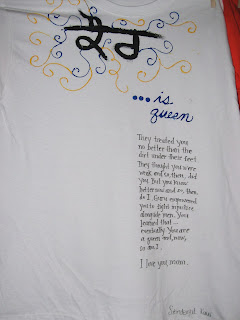 ਕੌਰ
...is
queen
They treated you
no better than the
dirt under their feet
They thought you were
weak and so, then,
did you. But you know
better now and so, then,
do I. Guru empowered
you to fight injustice
alongside men. You
learned that —
eventually. You are
a queen and, now,
so am I.
I love you, mama.
Kaur